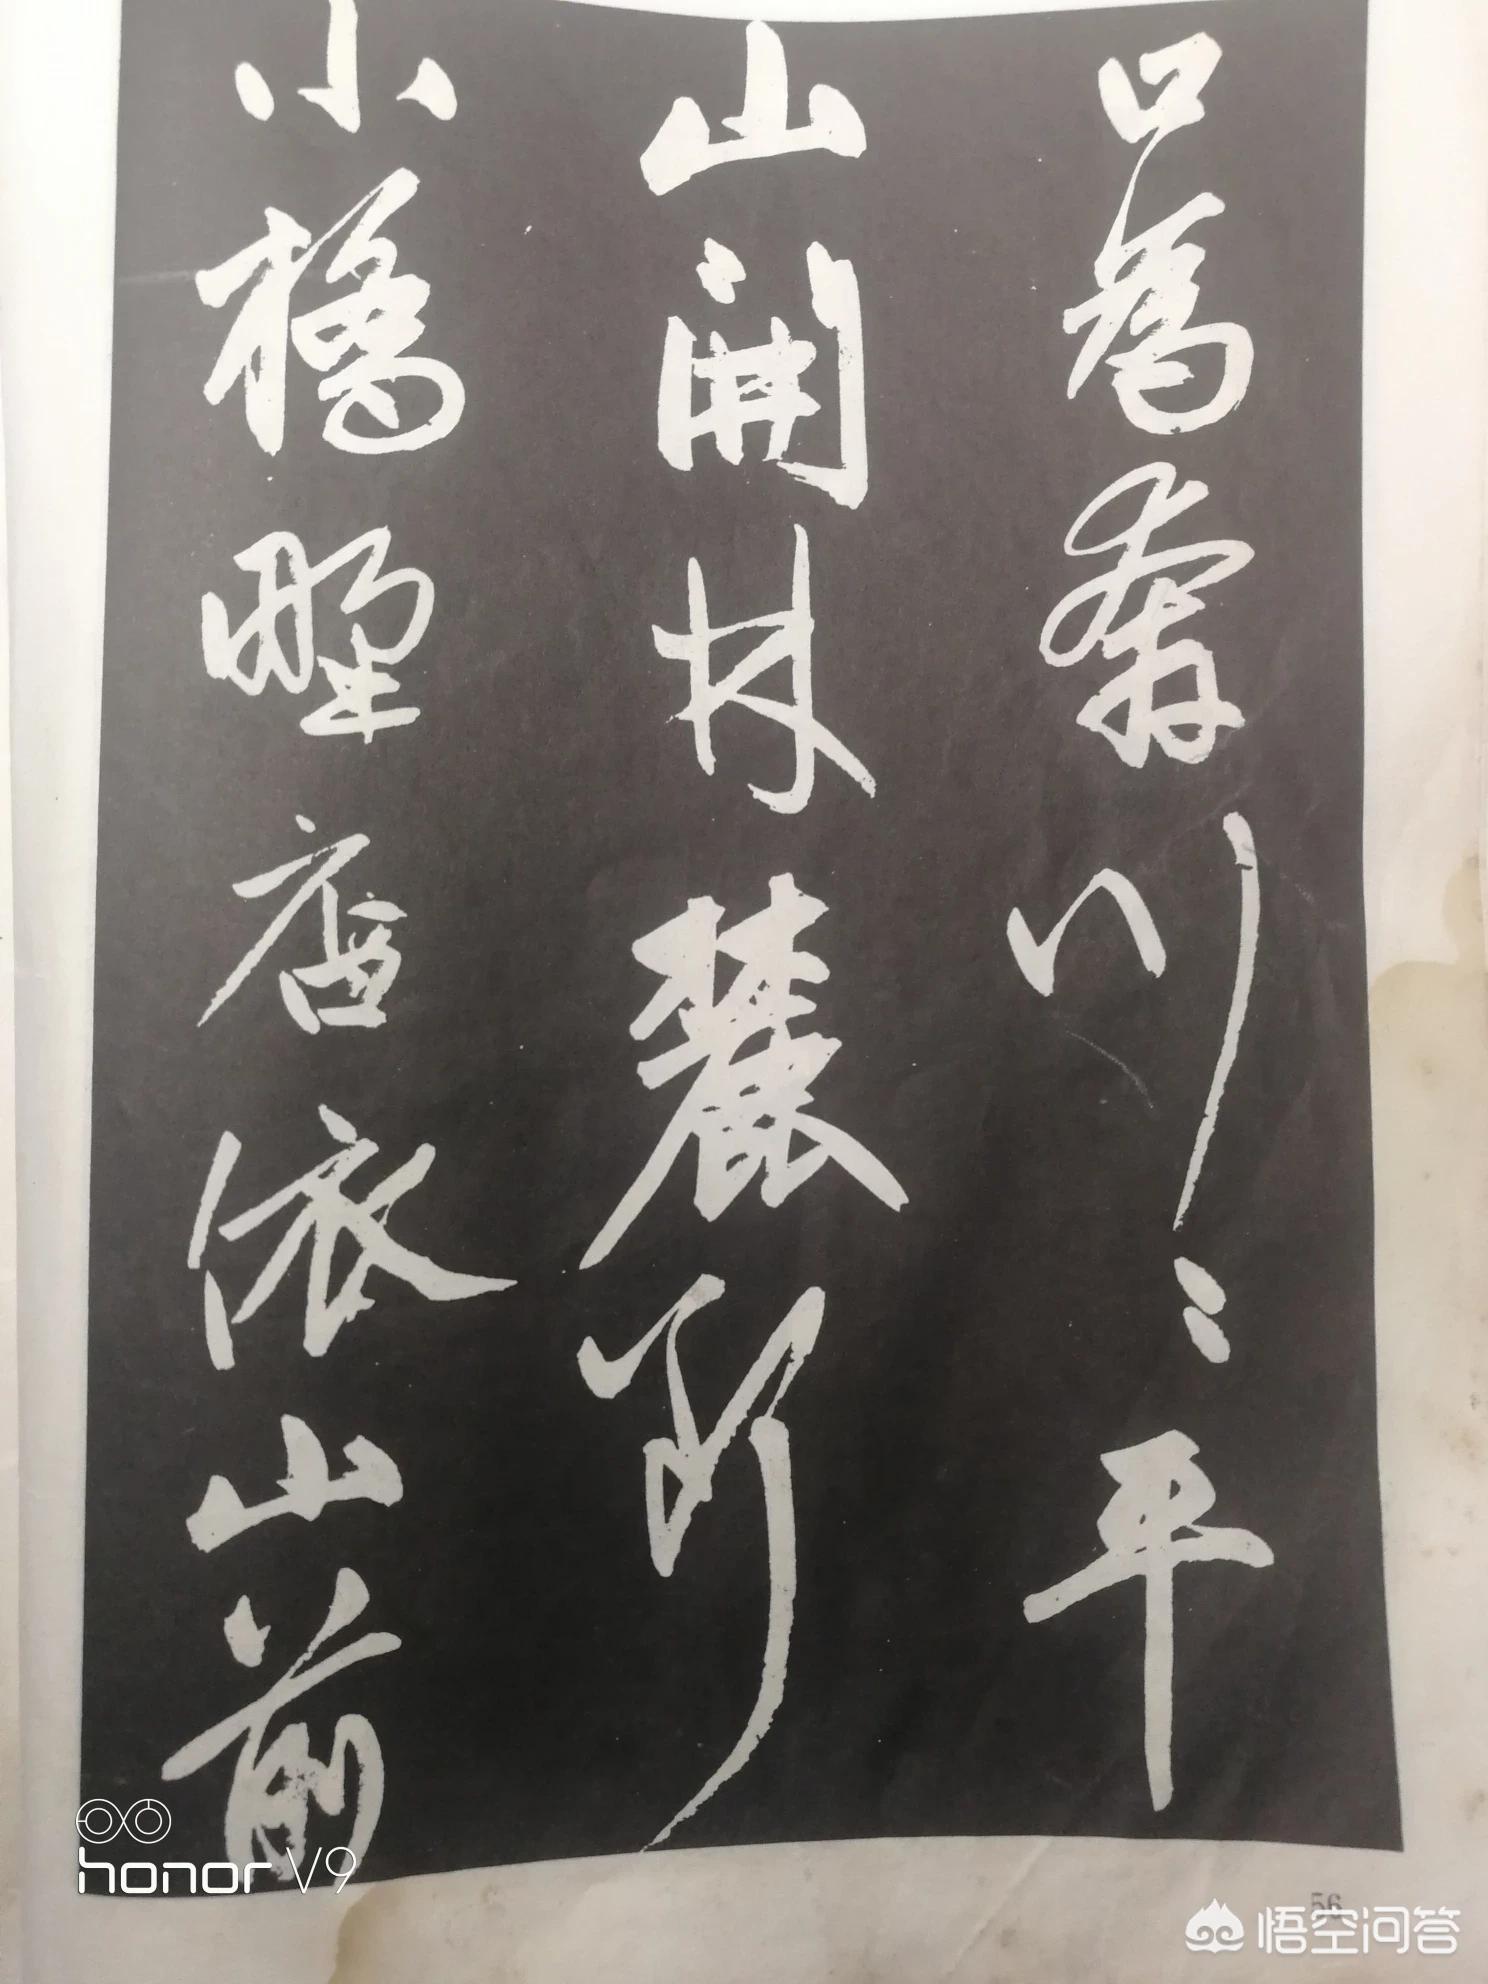 口為奔川〻平
山開林麓斷
小橋野店依山前
56
honor V9
悟空问答